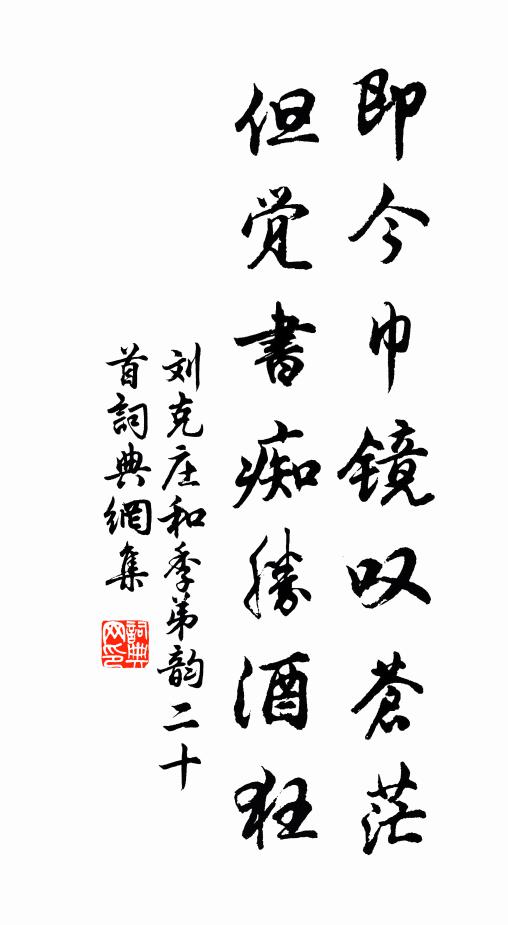 即今巾镜叹苍茫
但觉書痴勝酒狂
刘克庄和季弟韵二十
首詞典網集
詞典
网印